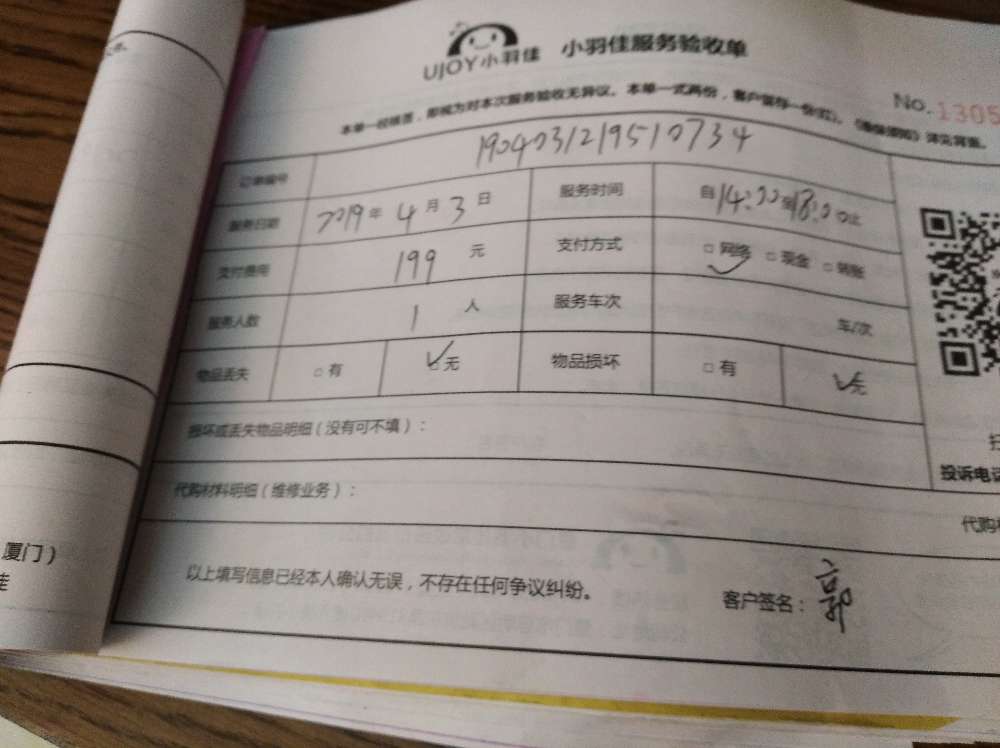 UJOY小羽佳 小羽佳服务验收单
No. 1305
本单一经核签，即视为对本次服务验收无异议。本单一式两份，客户留存一份(红)。
订单编号 190403121951 0734
服务日期 2019年 4月 3日 服务时间 自14:00至18:00止
支付费用 199 元 支付方式 □网络 □现金 □转账
服务人数 1 人 服务车次 车/次
物品丢失 □有 □无 物品损坏 □有 □无
损坏或丢失物品明细（没有可不填）：
投诉电
代购材料明细（维修业务）：
代购
厦门）
以上填写信息已经本人确认无误，不存在任何争议纠纷。 客户签名：郭